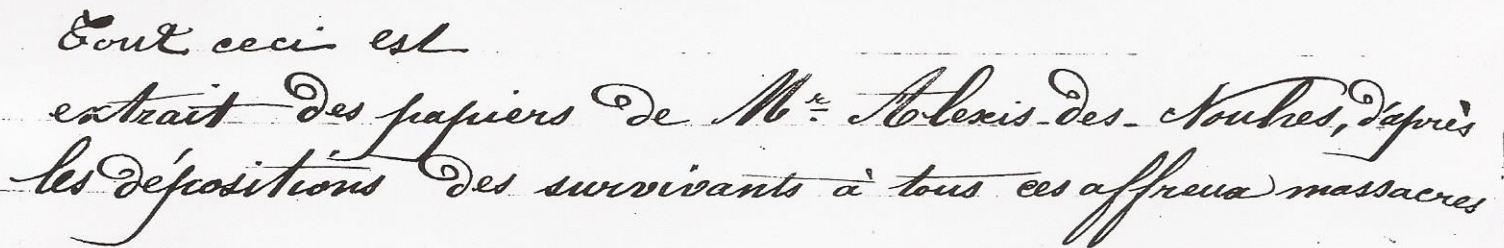 Tout ceci est
extrait des papiers de Mr. Alexis-des-Nouhes, d'après
les dépositions des survivants à tous ces affreux massacres